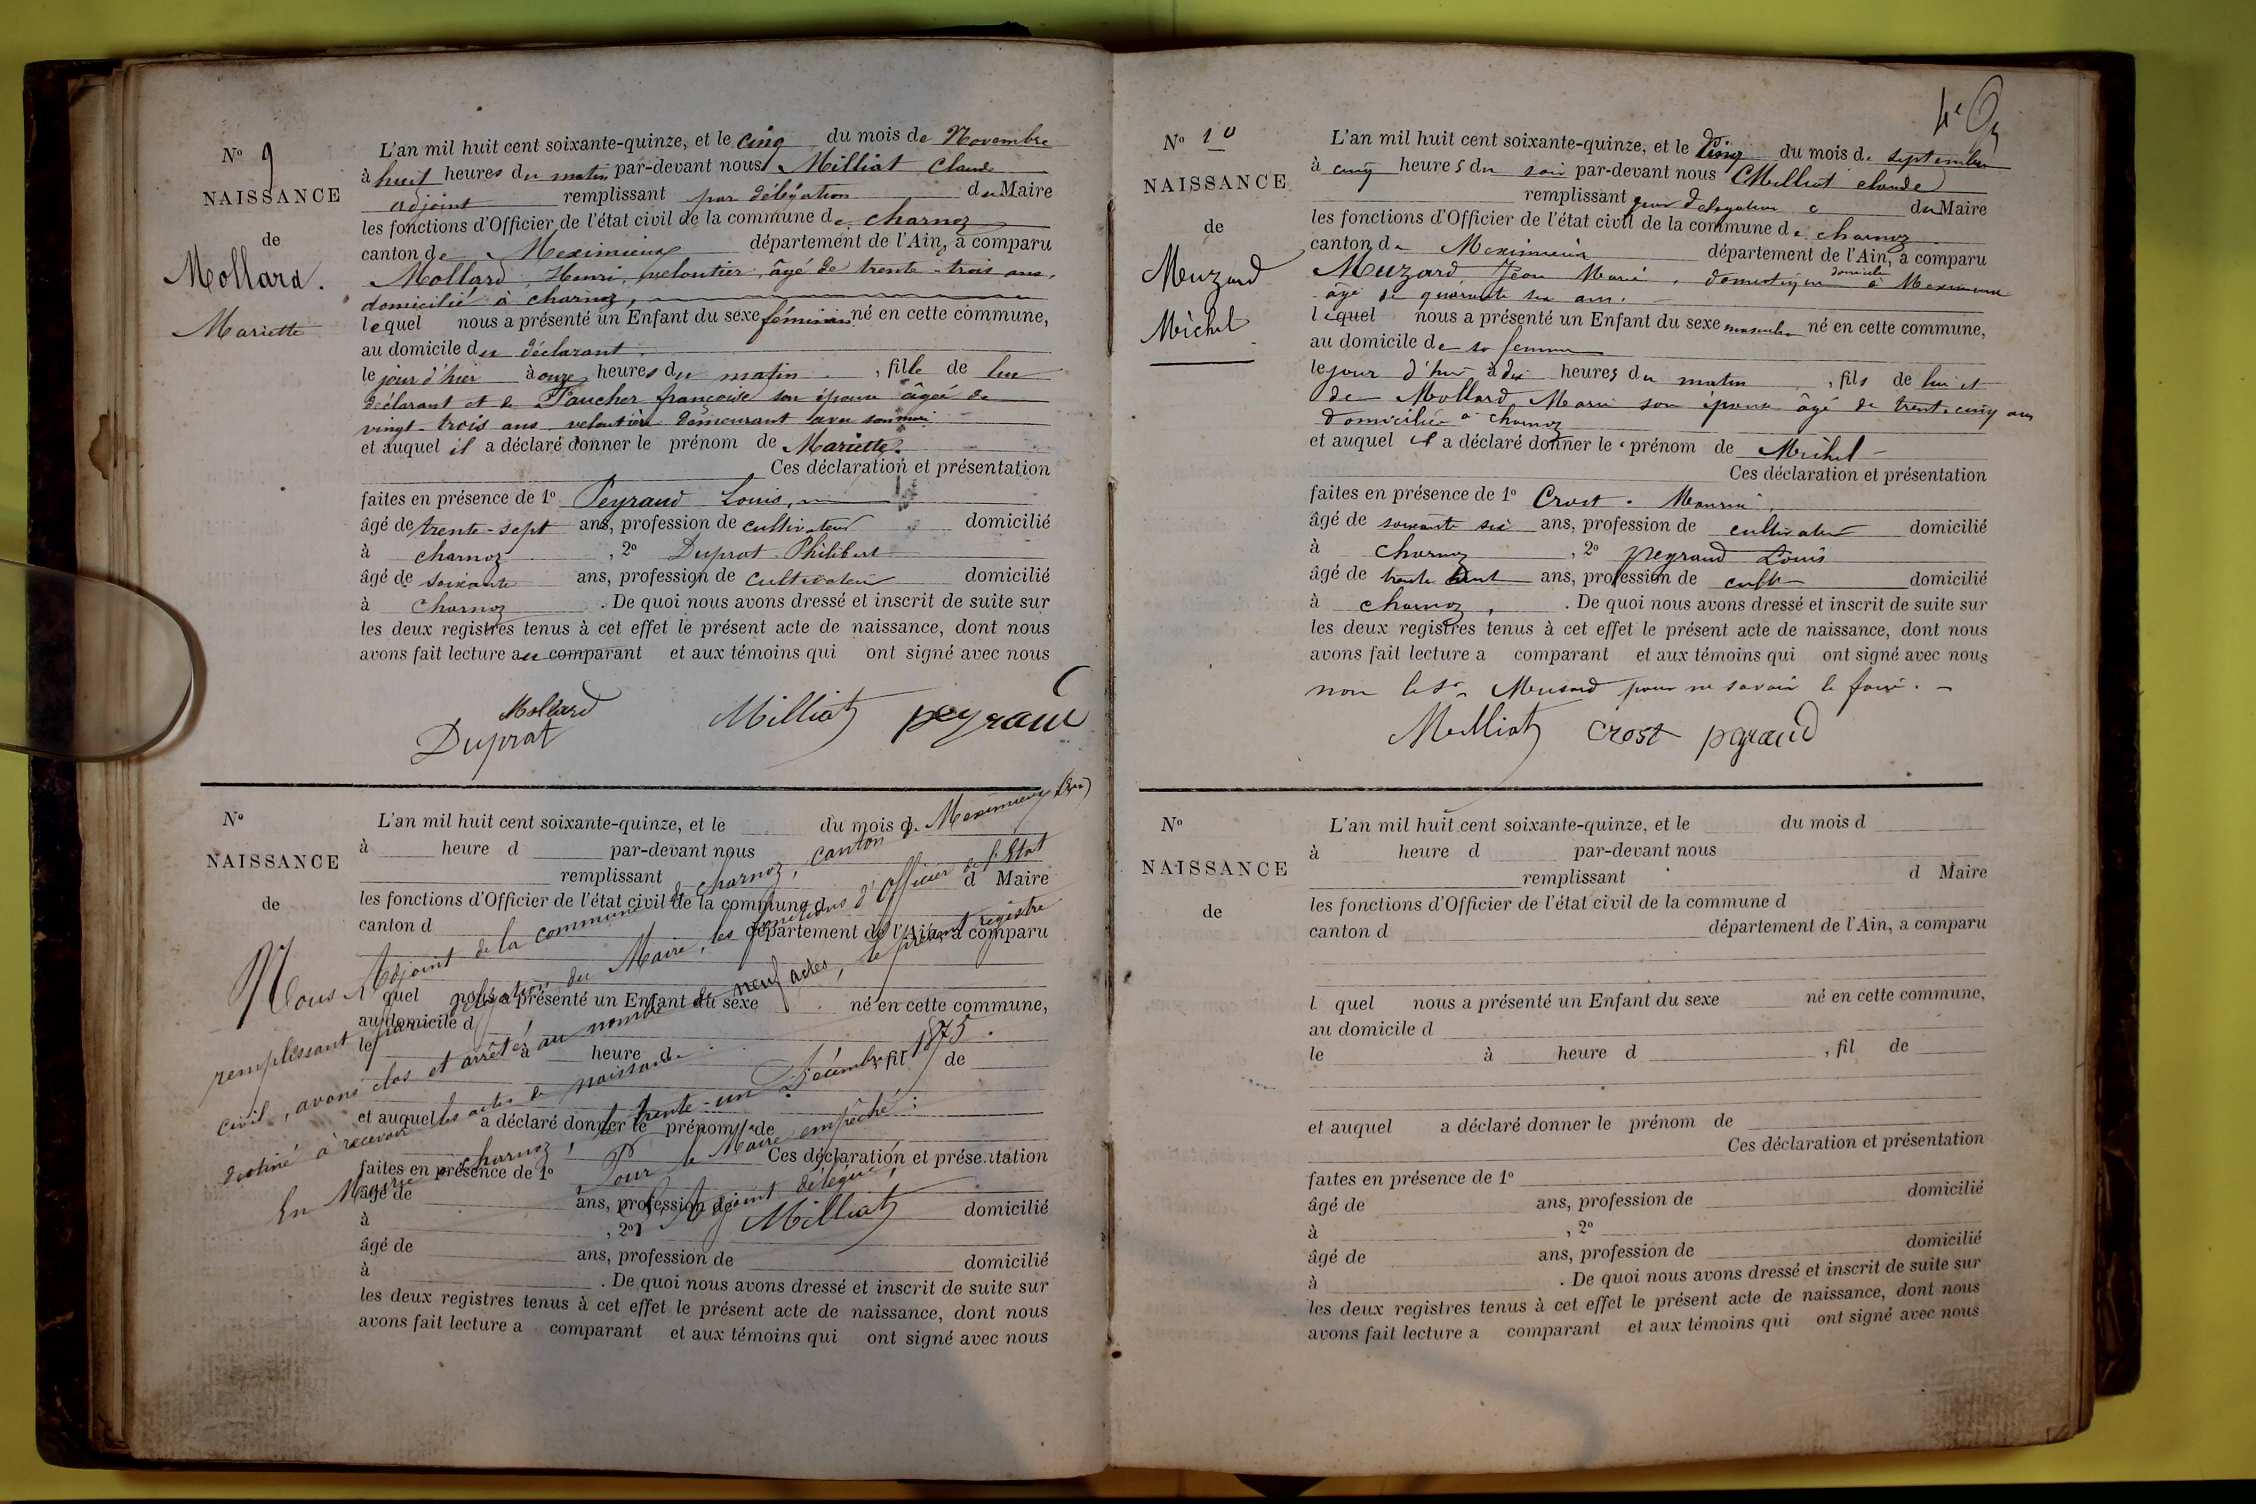 N° 9
NAISSANCE
de
Mollard.
Mariette
L'an mil huit cent soixante-quinze, et le cinq du mois de Novembre
à huit heures du matin par-devant nous Milliat Claude
adjoint remplissant par délégation du Maire
les fonctions d'Officier de l'état civil de la commune de charnoz
canton de Meximieux département de l'Ain, a comparu
Mollard, Henri, veloutier, âgé de trente-trois ans,
domicilié à charnoz,
lequel nous a présenté un Enfant du sexe féminin né en cette commune,
au domicile du déclarant.
le jour d'hier à onze heures du matin, fille de lui
déclarant et de Faucher françoise son épouse âgée de
vingt-trois ans veloutière demeurant avec son mari
et auquel il a déclaré donner le prénom de Mariette.
Ces déclaration et présentation
faites en présence de 1° Peyraud Louis,
âgé de trente-sept ans, profession de cultivateur domicilié
à charnoz, 2° Duprat Philibert
âgé de soixante ans, profession de cultivateur domicilié
à charnoz. De quoi nous avons dressé et inscrit de suite sur
les deux registres tenus à cet effet le présent acte de naissance, dont nous
avons fait lecture au comparant et aux témoins qui ont signé avec nous
Mollard
Duprat Milliat peyraud
N°
NAISSANCE
de
L'an mil huit cent soixante-quinze, et le du mois d
à heure d par-devant nous
remplissant d Maire
les fonctions d'Officier de l'état civil de la commune d
canton d département de l'Ain, a comparu
l quel nous a présenté un Enfant du sexe né en cette commune,
au domicile d
le à heure d , fil de
et auquel a déclaré donner le prénom de
Ces déclaration et présentation
faites en présence de 1°
âgé de ans, profession de domicilié
à , 2°
âgé de ans, profession de domicilié
à . De quoi nous avons dressé et inscrit de suite sur
les deux registres tenus à cet effet le présent acte de naissance, dont nous
avons fait lecture a comparant et aux témoins qui ont signé avec nous
Nous Adjoint de la commune de charnoz, canton de Meximieux (Ain)
remplissant par délégation du Maire, les fonctions d'Officier de l'Etat
civil, avons clos et arrêté au nombre de neuf actes, le présent registre
destiné à recevoir les actes de naissance.
En Mairie à charnoz, le trente-un Décembre 1875.
Pour le Maire empêché:
L'Adjoint délégué,
Milliat
N° 10
NAISSANCE
de
Muzard
Michel
L'an mil huit cent soixante-quinze, et le Cinq du mois de septembre
à cinq heures du soir par-devant nous Milliat claude
remplissant par délégation du Maire
les fonctions d'Officier de l'état civil de la commune de charnoz
canton de Meximieux département de l'Ain, a comparu
Muzard Jean Marie, domestique domicilié à Meximieux
âgé de quarante six ans.
lequel nous a présenté un Enfant du sexe masculin né en cette commune,
au domicile de sa femme
le jour d'hui à dix heures du matin, fils de lui et
de Mollard Marie son épouse âgé de trente cinq ans
domiciliée à charnoz
et auquel il a déclaré donner le prénom de Michel
Ces déclaration et présentation
faites en présence de 1° Crost
âgé de soixante six ans, profession de cultivateur domicilié
à charnoz, 2° peyraud Louis
âgé de trente ans, profession de cultr domicilié
à charnoz,. De quoi nous avons dressé et inscrit de suite sur
les deux registres tenus à cet effet le présent acte de naissance, dont nous
avons fait lecture a comparant et aux témoins qui ont signé avec nous
non le Sr Musard pour ne savoir le faire.
Milliat Crost peyraud
N°
NAISSANCE
de
L'an mil huit cent soixante-quinze, et le du mois d
à heure d par-devant nous
remplissant d Maire
les fonctions d'Officier de l'état civil de la commune d
canton d département de l'Ain, a comparu
l quel nous a présenté un Enfant du sexe né en cette commune,
au domicile d
le à heure d , fil de
et auquel a déclaré donner le prénom de
Ces déclaration et présentation
faites en présence de 1°
âgé de ans, profession de domicilié
à , 2°
âgé de ans, profession de domicilié
à . De quoi nous avons dressé et inscrit de suite sur
les deux registres tenus à cet effet le présent acte de naissance, dont nous
avons fait lecture a comparant et aux témoins qui ont signé avec nous